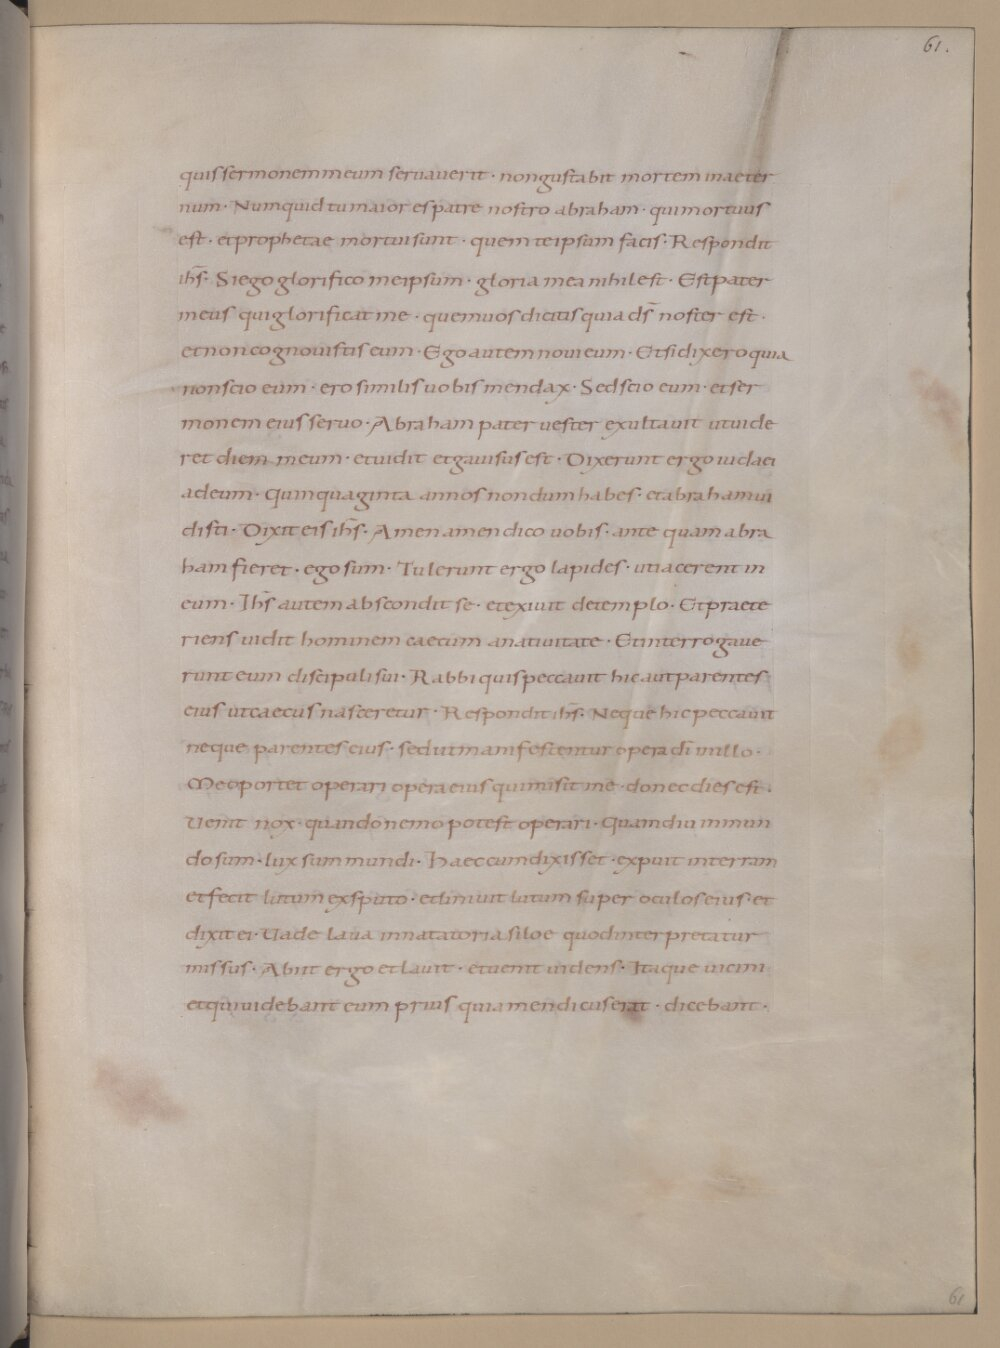 61.
quis sermonem meum servaverit · non gustabit mortem in aeter
num · Numquid tu maior es patre nostro abraham · qui mortuus
est · et prophetae mortui sunt · quem te ipsum facis · Respondit
ih̅s · Si ego glorifico me ipsum · gloria mea nihil est · Est pater
meus qui glorificat me · quem uos dicitis quia d̅s noster est ·
et non cognouistis eum · Ego autem noui eum · Et si dixero quia
non scio eum · ero similis uobis mendax · Sed scio eum · et ser
monem eius seruo · Abraham pater uester exultauit ut uide
ret diem meum · et uidit et gauisus est · Dixerunt ergo iudaei
ad eum · Quinquaginta annos nondum habes · et abraham ui
disti · Dixit eis ih̅s · Amen amen dico uobis · ante quam abra
ham fieret · ego sum · Tulerunt ergo lapides · ut iacerent in
eum · Ih̅s autem abscondit se · et exiuit de templo · Et praete
riens uidit hominem caecum a natiuitate · Et interrogaue
runt eum discipuli sui · Rabbi quis peccauit hic aut parentes
eius ut caecus nasceretur · Respondit ih̅s · Neque hic peccauit
neque parentes eius · sed ut manifestentur opera d̅i in illo ·
Me oportet operari opera eius qui misit me · donec dies est ·
Uenit nox · quando nemo potest operari · Quamdiu in mun
do sum · lux sum mundi · Haec cum dixisset · expuit in terram
et fecit lutum ex sputo · et liniuit lutum super oculos eius et
dixit ei · Uade laua in natatoria siloe quod interpretatur
missus · Abiit ergo et lauit · et uenit uidens · Itaque uicini
et qui uidebant eum prius quia mendicus erat · dicebant ·
61